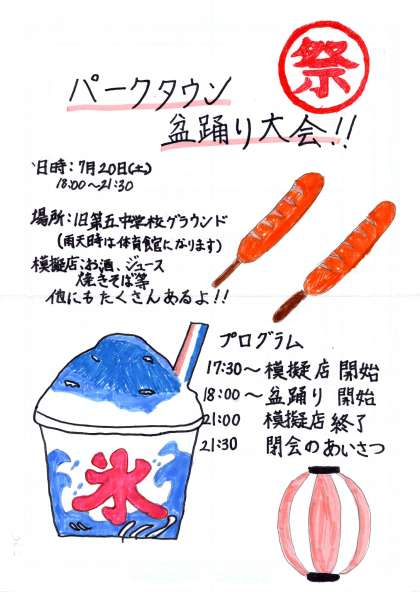 祭
パークタウン
盆踊り大会!!
日時:7月20日(土)
18:00〜21:30
場所:旧第五中学校グラウンド
(雨天時は体育館になります)
模擬店:お酒、ジュース
焼きそば等
他にもたくさんあるよ!!
プログラム
17:30〜模擬店 開始
18:00〜盆踊り 開始
21:00 模擬店 終了
21:30 閉会のあいさつ
氷